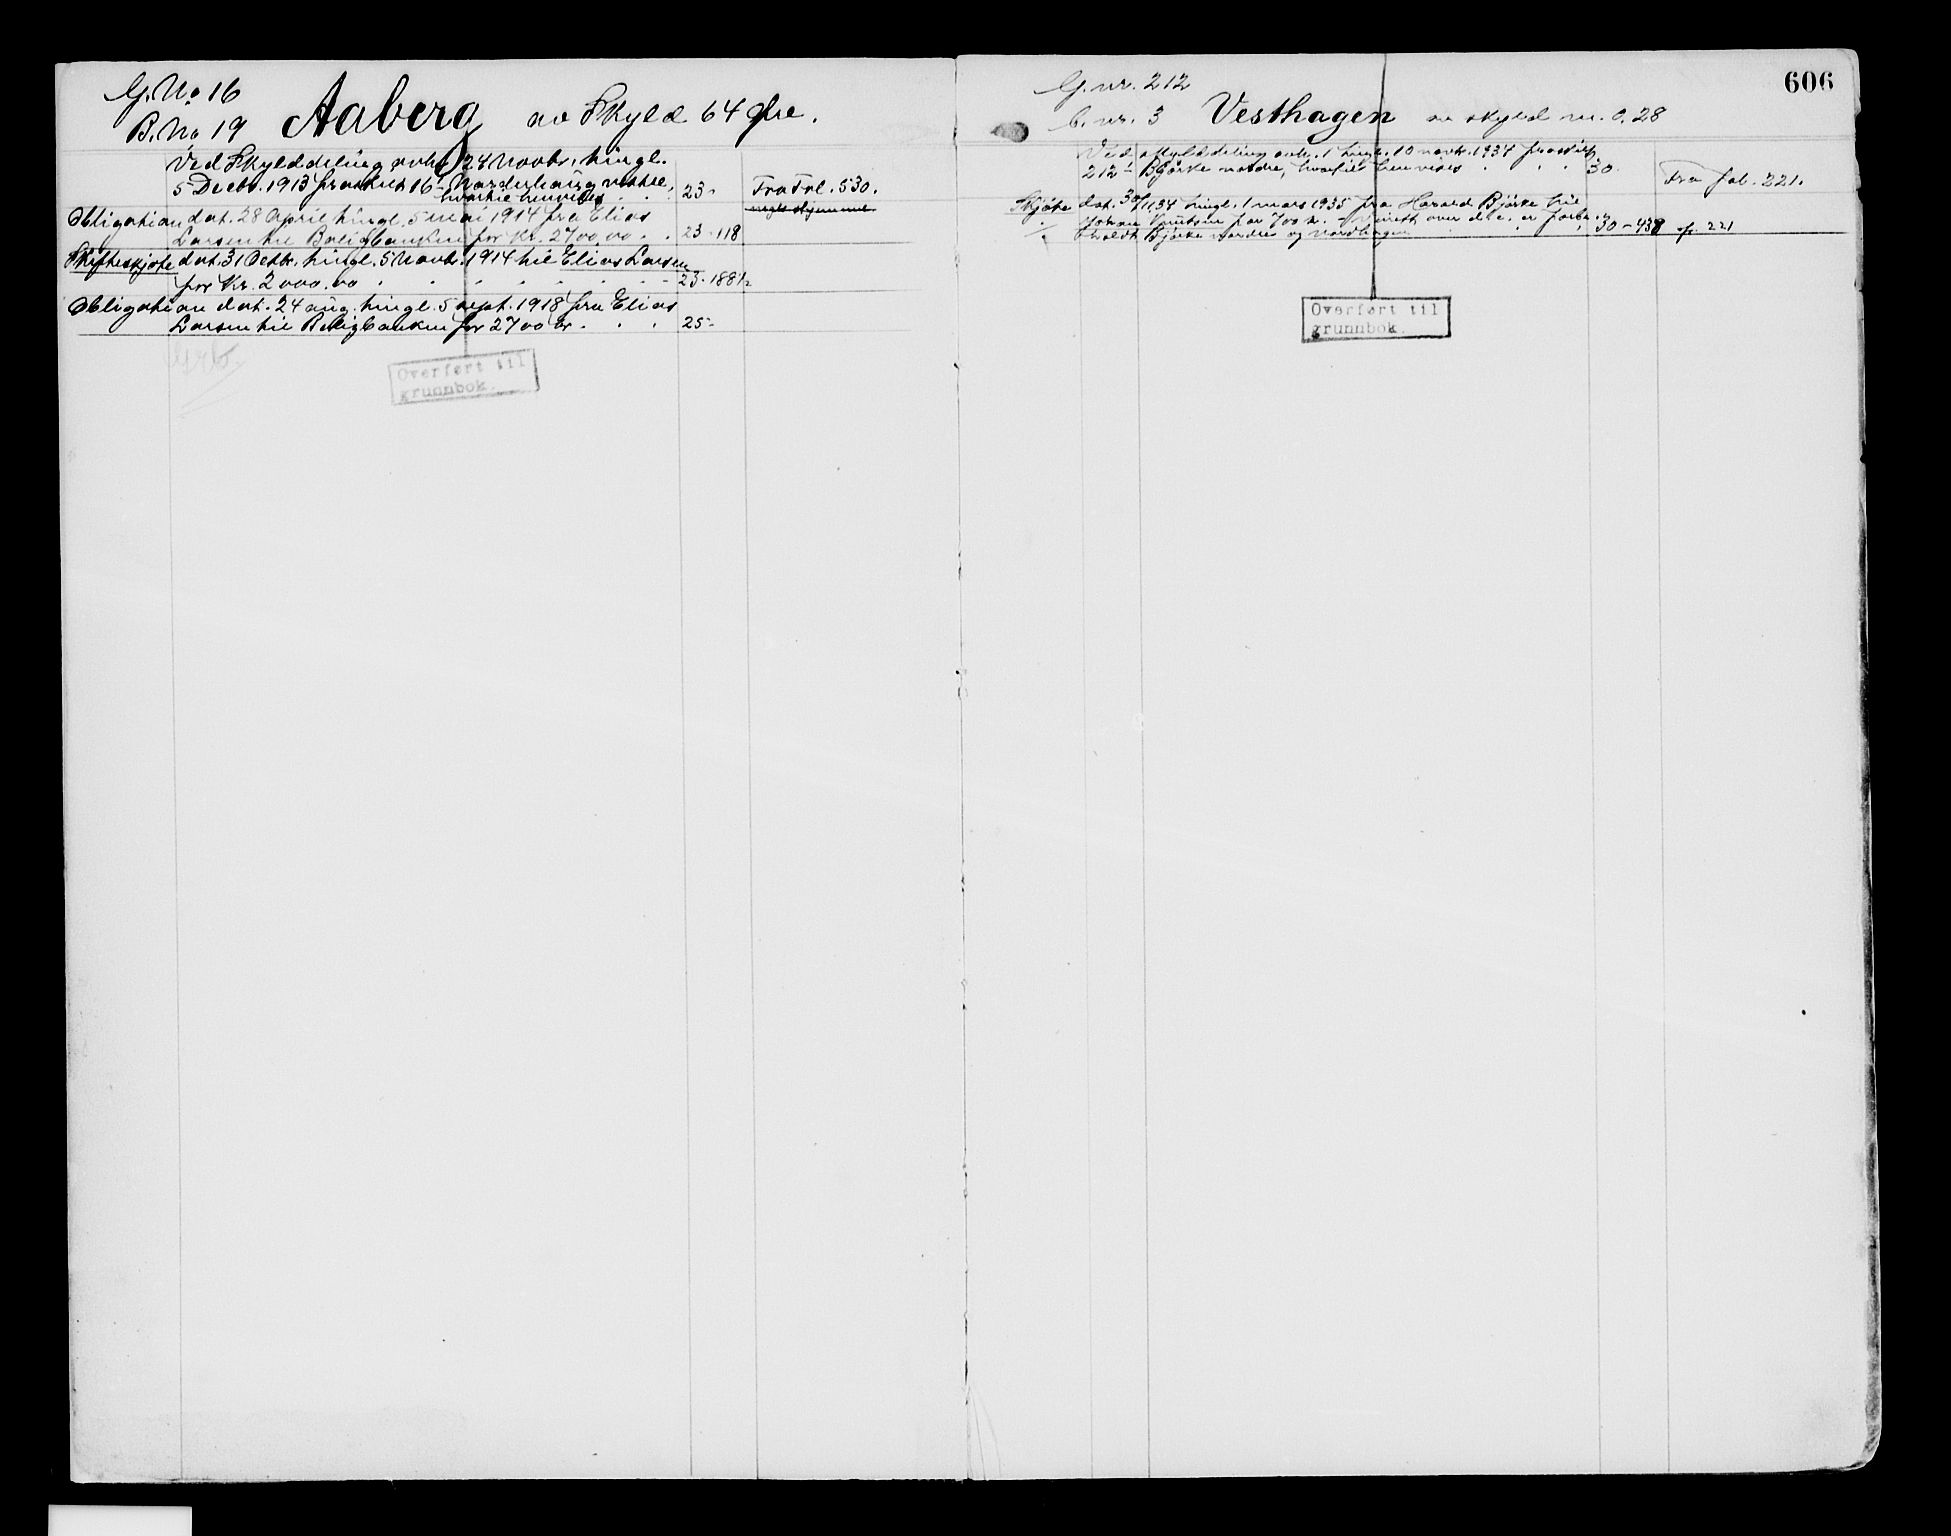 G. No 16
B. No 19 Aaberg av Skyld 64 Øre.
Ved Skylddeling avh. 24 Novbr, tingl.
5 Decbr. 1913 fraskilt 16 Norderhaug vestre, 23- Fra Fol. 530.
hvortil henvises
Obligation dat. 28 April, tingl. 5 Mai 1914 fra Elias
Larsen til Boligbanken for Kr. 2700,00 . . 23-118
Skifteskjøte dat. 31 Octbr, tingl. 5 Novbr. 1914 til Elias Larsen
for Kr. 2000,00 . . . . . . 23-188 1/2
Obligation dat. 24 aug. tingl. 5 sept. 1918 fra Elias
Larsen til Boligbanken for 2700 kr . . . 25-
Grb.
Overført til
grunnbok.
606
G. nr. 212
b. nr. 3 Vesthagen av skyld m. 0.28
Ved skylddeling avh. 1 tingl. 10 novbr. 1934 fraskilt
212-1 Bjørke nordre, hvortil henvises . . . 30. Fra fol. 221.
Skjøte dat. 30/11 34 tingl. 1 mars 1935 fra Harald Bjørke til
Johan Knutsen for 700 k. over d.e. er forbe-
holdt Bjørke nordre og Nordhagen . . . 30-438 f. 221
Overført til
grunnbok.